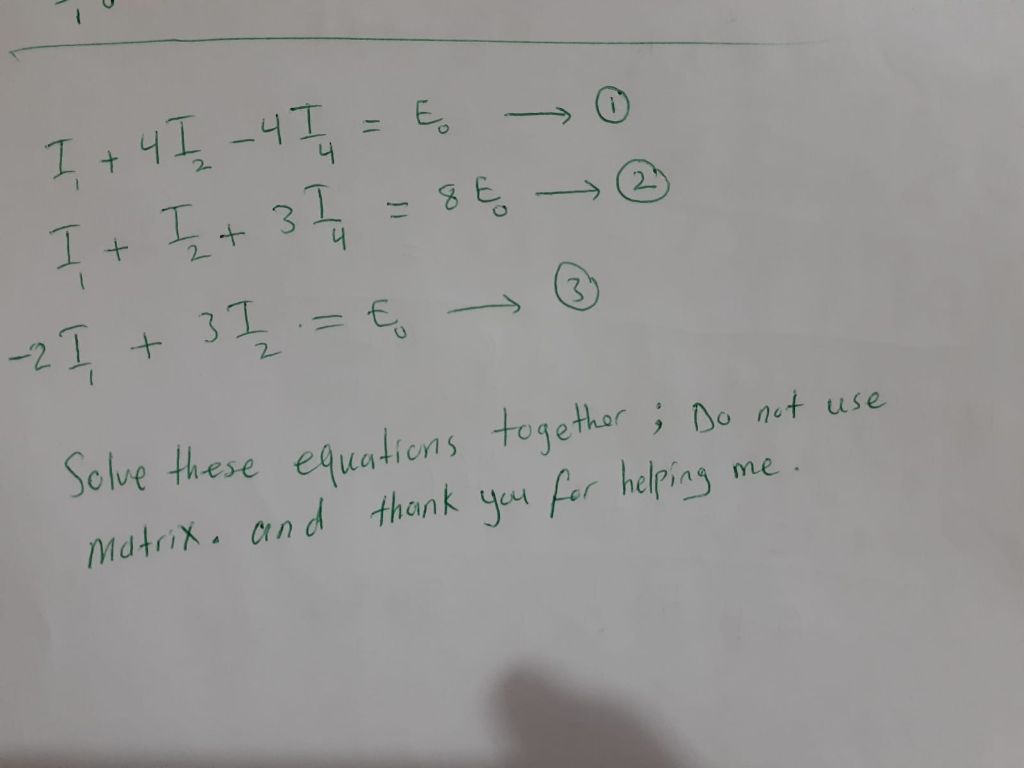 I₁ + 4I₂ - 4I₄ = E₀ ⟶ ①
I₁ + I₂ + 3I₄ = 8E₀ ⟶ ②
-2I₁ + 3I₂ = E₀ ⟶ ③
Solve these equations together ; Do not use
matrix. and thank you for helping me.